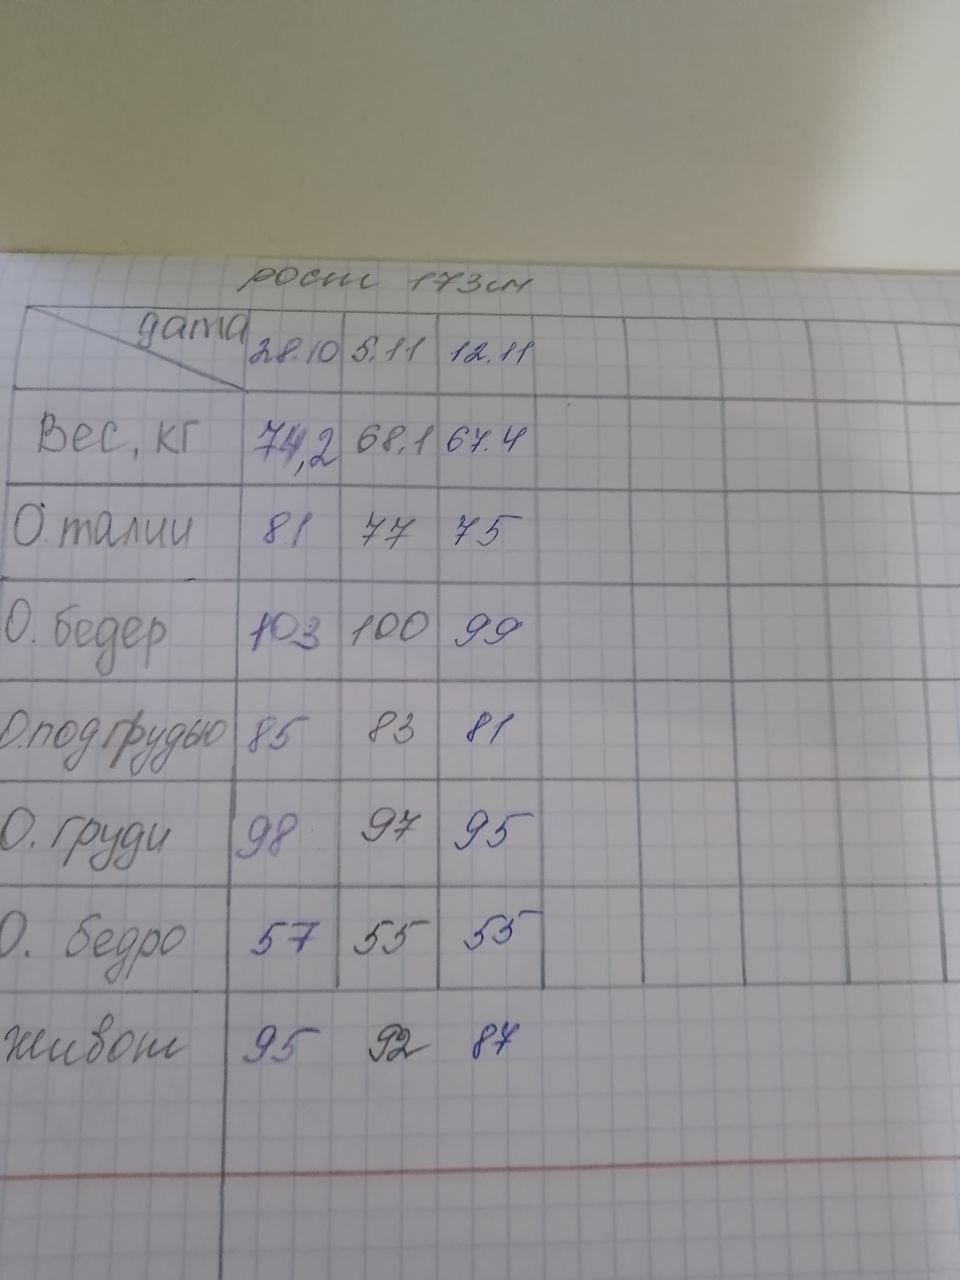 рост 173см
дата 28.10 5.11 12.11
Вес, кг 74,2 68.1 67.4
О. талии 81 77 75
О. бедер 103 100 99
О. под грудью 85 83 81
О. груди 98 97 95
О. бедро 57 55 55
живот 95 92 87